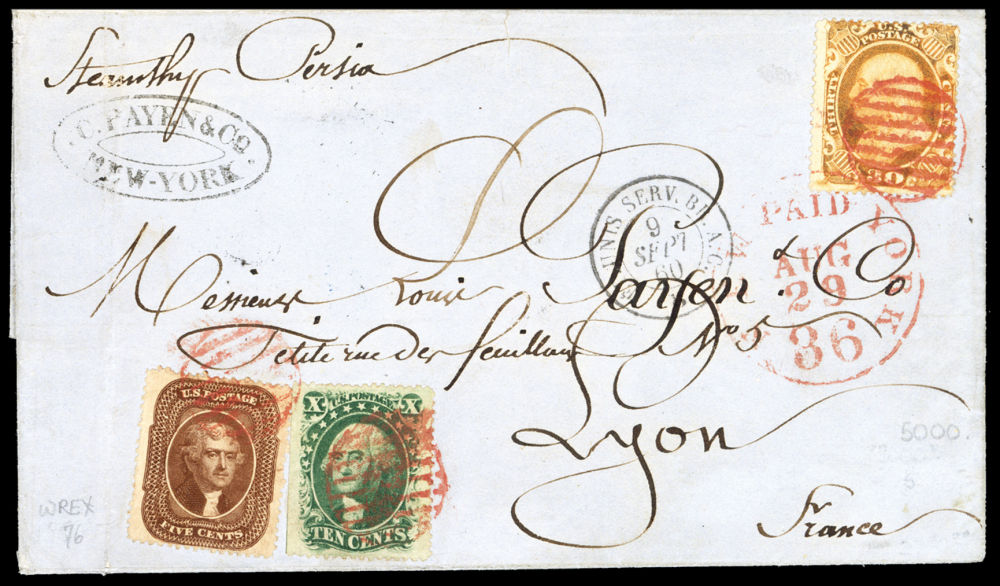 Steamship Persia
C. PAYEN & CO.
NEW-YORK
U.S. POSTAGE
THIRTY CENTS
30
PAID
YORK
AUG
29
36
9
SEPT
60
SERV. A.C.
Messieurs Louis Payen & Co
Petite rue des feuillans No 5
Lyon
France
U.S. POSTAGE
FIVE CENTS
X U.S. POSTAGE X
TEN CENTS
5000.
5
WREX
76